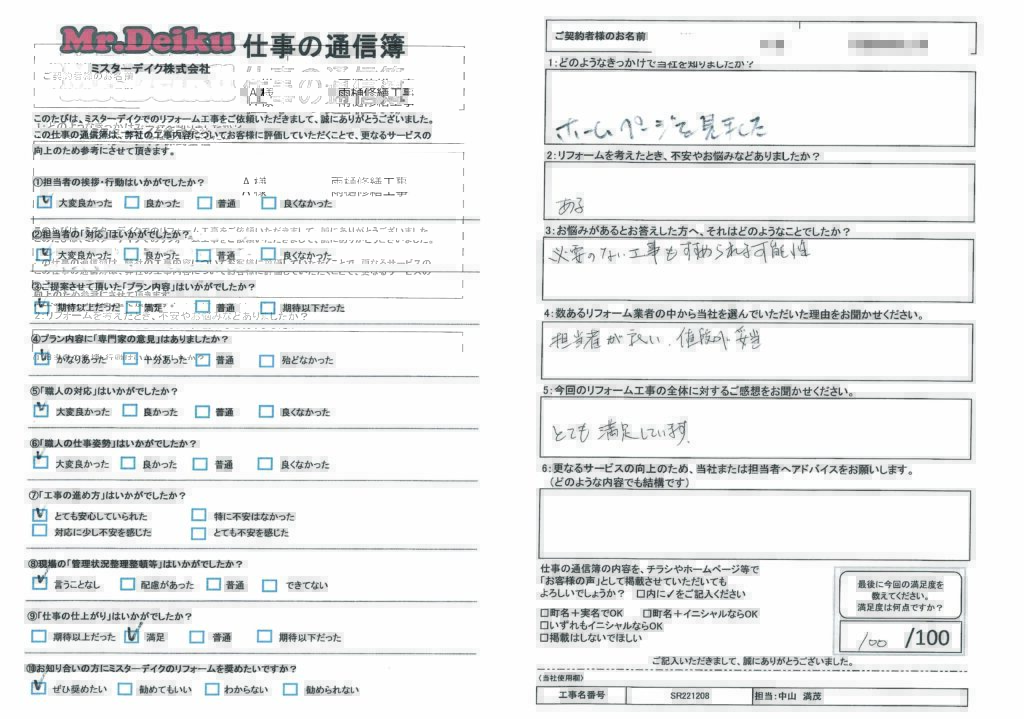 Mr.Deiku 仕事の通信簿
ミスターデイク株式会社
ご契約者様のお名前
A様 雨樋修繕工事
このたびは、ミスターデイクでのリフォーム工事をご依頼いただきまして、誠にありがとうございました。
この仕事の通信簿は、弊社の工事内容についてお客様に評価していただくことで、更なるサービスの
向上のため参考にさせて頂きます。
A様 雨樋修繕工事
①担当者の挨拶・行動はいかがでしたか？
大変良かった 良かった 普通 良くなかった
②担当者の「対応」はいかがでしたか？
大変良かった 良かった 普通 良くなかった
③ご提案させて頂いた「プラン内容」はいかがでしたか？
期待以上だった 満足 普通 期待以下だった
④プラン内容に「専門家の意見」はありましたか？
かなりあった 十分あった 普通 殆どなかった
⑤「職人の対応」はいかがでしたか？
大変良かった 良かった 普通 良くなかった
⑥「職人の仕事姿勢」はいかがでしたか？
大変良かった 良かった 普通 良くなかった
⑦「工事の進め方」はいかがでしたか？
とても安心していられた 特に不安はなかった
対応に少し不安を感じた とても不安を感じた
⑧現場の「管理状況整理整頓等」はいかがでしたか？
言うことなし 配慮があった 普通 できてない
⑨「仕事の仕上がり」はいかがでしたか？
期待以上だった 満足 普通 期待以下だった
⑩お知り合いの方にミスターデイクのリフォームを奨めたいですか？
ぜひ奨めたい 勧めてもいい わからない 勧められない
ご契約者様のお名前
1：どのようなきっかけで当社を知りましたか？
ホームページを見ました
2：リフォームを考えたとき、不安やお悩みなどありましたか？
ある
3：お悩みがあるとお答えした方へ、それはどのようなことでしたか？
必要のない工事もすすめられる可能性
4：数あるリフォーム業者の中から当社を選んでいただいた理由をお聞かせください。
担当者が良い、値段が妥当
5：今回のリフォーム工事の全体に対するご感想をお聞かせください。
とても満足しています
6：更なるサービスの向上のため、当社または担当者へアドバイスをお願いします。
（どのような内容でも結構です）
仕事の通信簿の内容を、チラシやホームページ等で
「お客様の声」として掲載させていただいても
よろしいでしょうか？ □内に✓をご記入ください
□町名＋実名でOK □町名＋イニシャルならOK
□いずれもイニシャルならOK
□掲載はしないでほしい
最後に今回の満足度を
教えてください。
満足度は何点ですか？
100 /100
ご記入いただきまして、誠にありがとうございました。
（当社使用欄）
工事名番号 SR221208 担当：中山 満茂